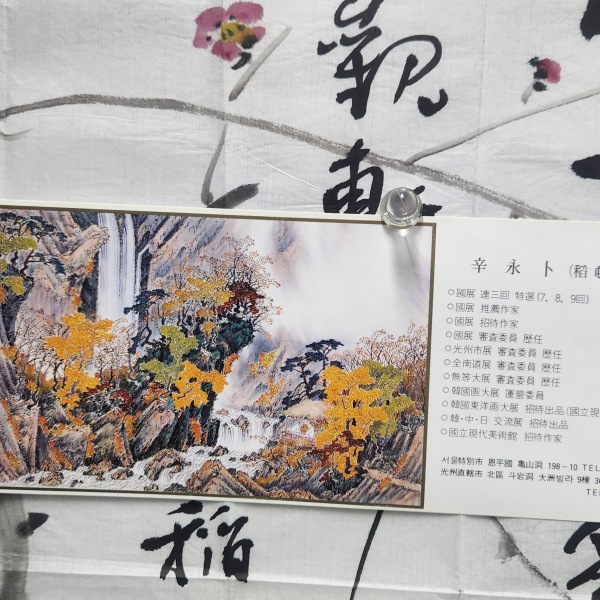 觀
車
辛永卜 (稻
○國展 連三回 特選(7, 8, 9回)
○國展 推薦作家
○國展 招待作家
○國展 審査委員 歷任
○光州市展 審査委員 歷任
○全南道展 審査委員 歷任
○無等大展 審査委員 歷任
○韓國画大展 運營委員
○韓國東洋画大展 招待出品 (國立現
○韓·中·日 交流展 招待出品
○國立現代美術館 招待作家
서울特別市 恩平國 亀山洞 198-10 TEL
光州直轄市 北區 斗岩洞 大洲빌라 9棟 3
TE
稻